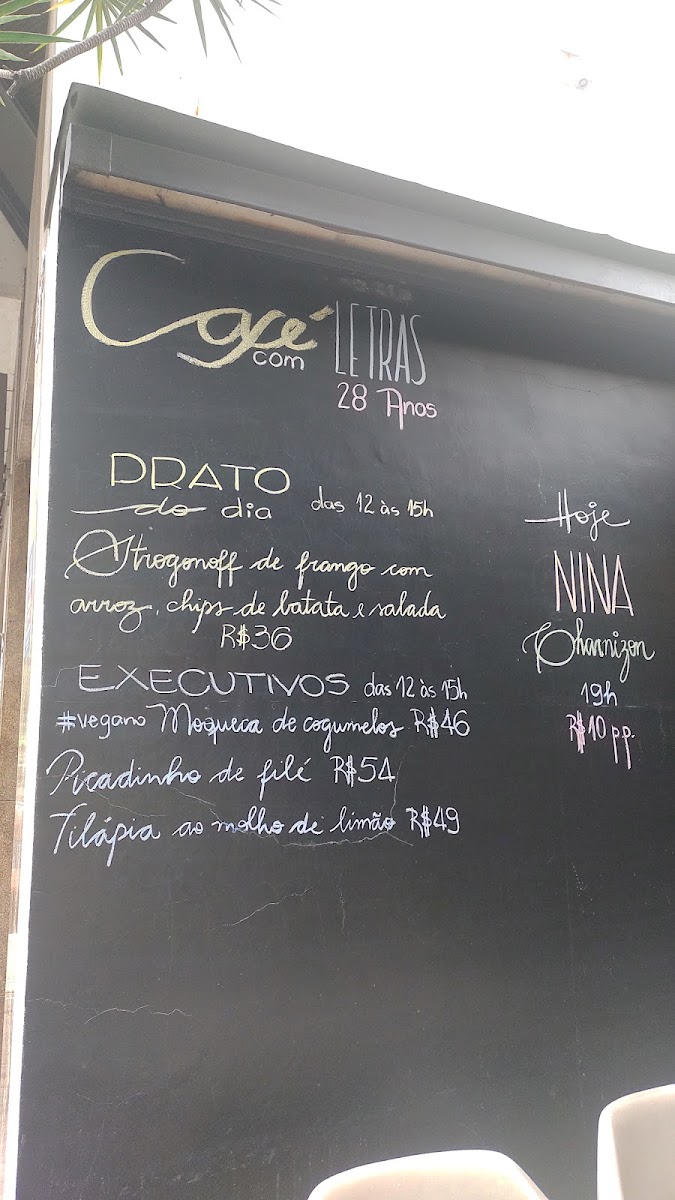 Café
com LETRAS
28 Anos
PRATO
do dia das 12 às 15h
Strogonoff de frango com
arroz, chips de batata e salada
R$36
EXECUTIVOS das 12 às 15h
#vegano Moqueca de cogumelos R$46
Picadinho de filé R$54
Tilápia ao molho de limão R$49
Hoje
NINA
Charnizon
19h
R$10 pp.